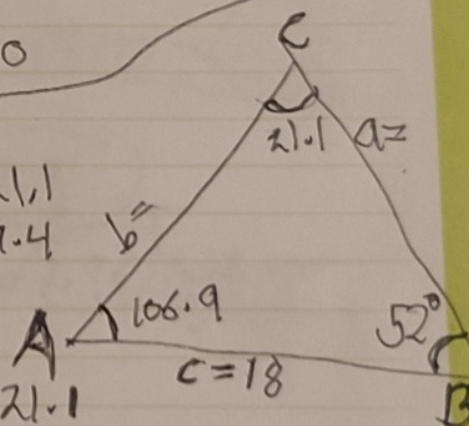 0
C
21.1 a=
.1,1
b=
.4
106.9
52°
A
c=18
B
21.1